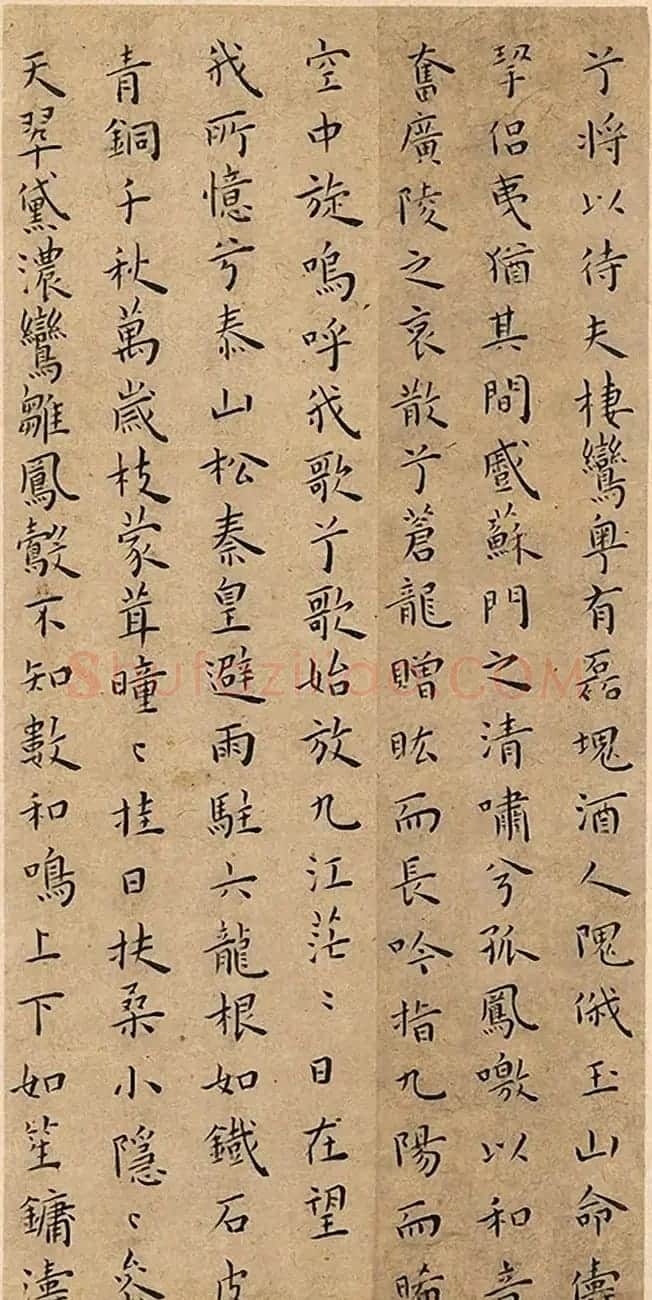 兮將以待夫棲鸞粵有磊塊酒人隗俄玉山命儔
挈侶夷猶其間慼蘇門之清嘯兮孤鳳噭以和音
奮廣陵之哀散兮蒼龍贈眩而長吟指九陽而晞
空中旋嗚呼我歌兮歌始放九江茫〻日在望
我所憶兮泰山松秦皇避雨駐六龍根如鐵石皮
青銅千秋萬歲枝蒙茸曈〻挂日扶桑小隱〻參
天翠黛濃鸞雛鳳鷇不知數和鳴上下如笙鏞濤
shufaziliao.COM